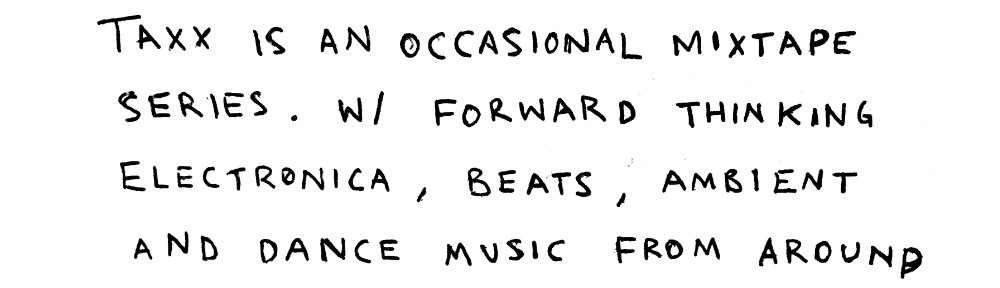 TAXX IS AN OCCASIONAL MIXTAPE
SERIES. W/ FORWARD THINKING
ELECTRONICA, BEATS, AMBIENT
AND DANCE MUSIC FROM AROUND